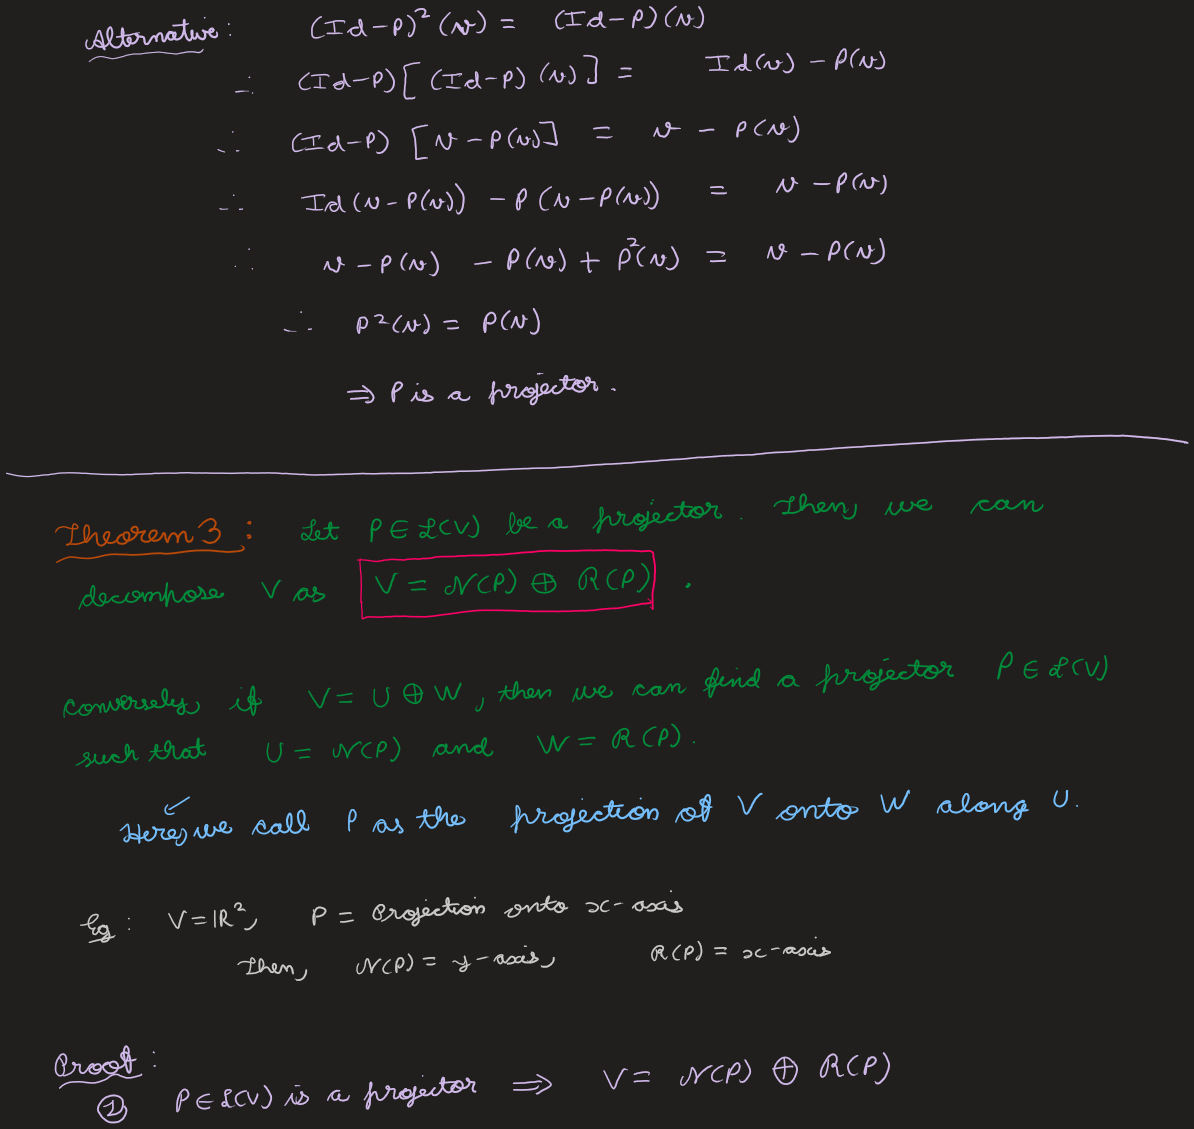 Alternative: (Id-P)²(v) = (Id-P)(v)
∴ (Id-P)[(Id-P)(v)] = Id(v) - P(v)
∴ (Id-P)[v - P(v)] = v - P(v)
∴ Id(v - P(v)) - P(v - P(v)) = v - P(v)
∴ v - P(v) - P(v) + P²(v) = v - P(v)
∴ P²(v) = P(v)
⇒ P is a projector.
Theorem 3: Let P ∈ ℒ(V) be a projector. Then, we can
decompose V as V = 𝒩(P) ⊕ ℛ(P).
Conversely, if V = U ⊕ W, then we can find a projector P ∈ ℒ(V)
such that U = 𝒩(P) and W = ℛ(P).
Here, we call P as the projection of V onto W along U.
Eg: V = ℝ², P = Projection onto x-axis
Then, 𝒩(P) = y-axis, ℛ(P) = x-axis
Proof:
① P ∈ ℒ(V) is a projector ⇒ V = 𝒩(P) ⊕ ℛ(P)